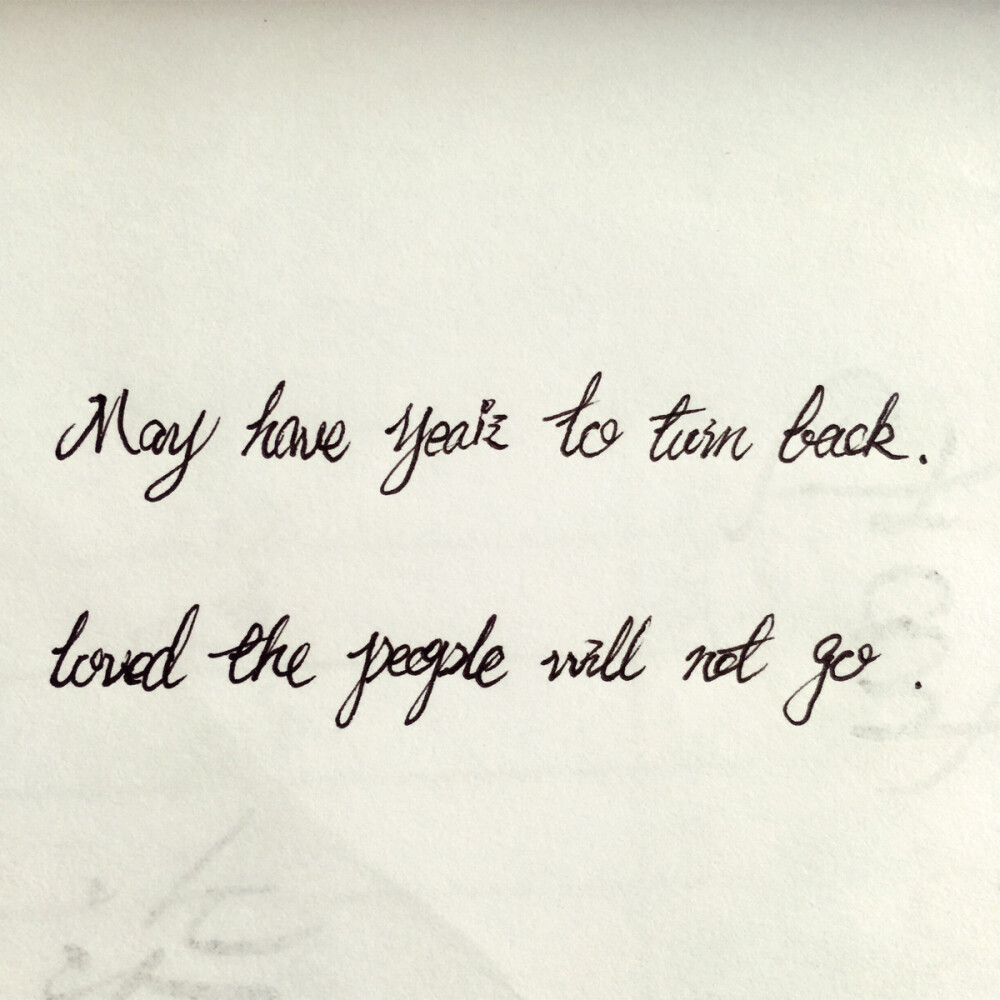 May have years to turn back.
loved the people will not go.